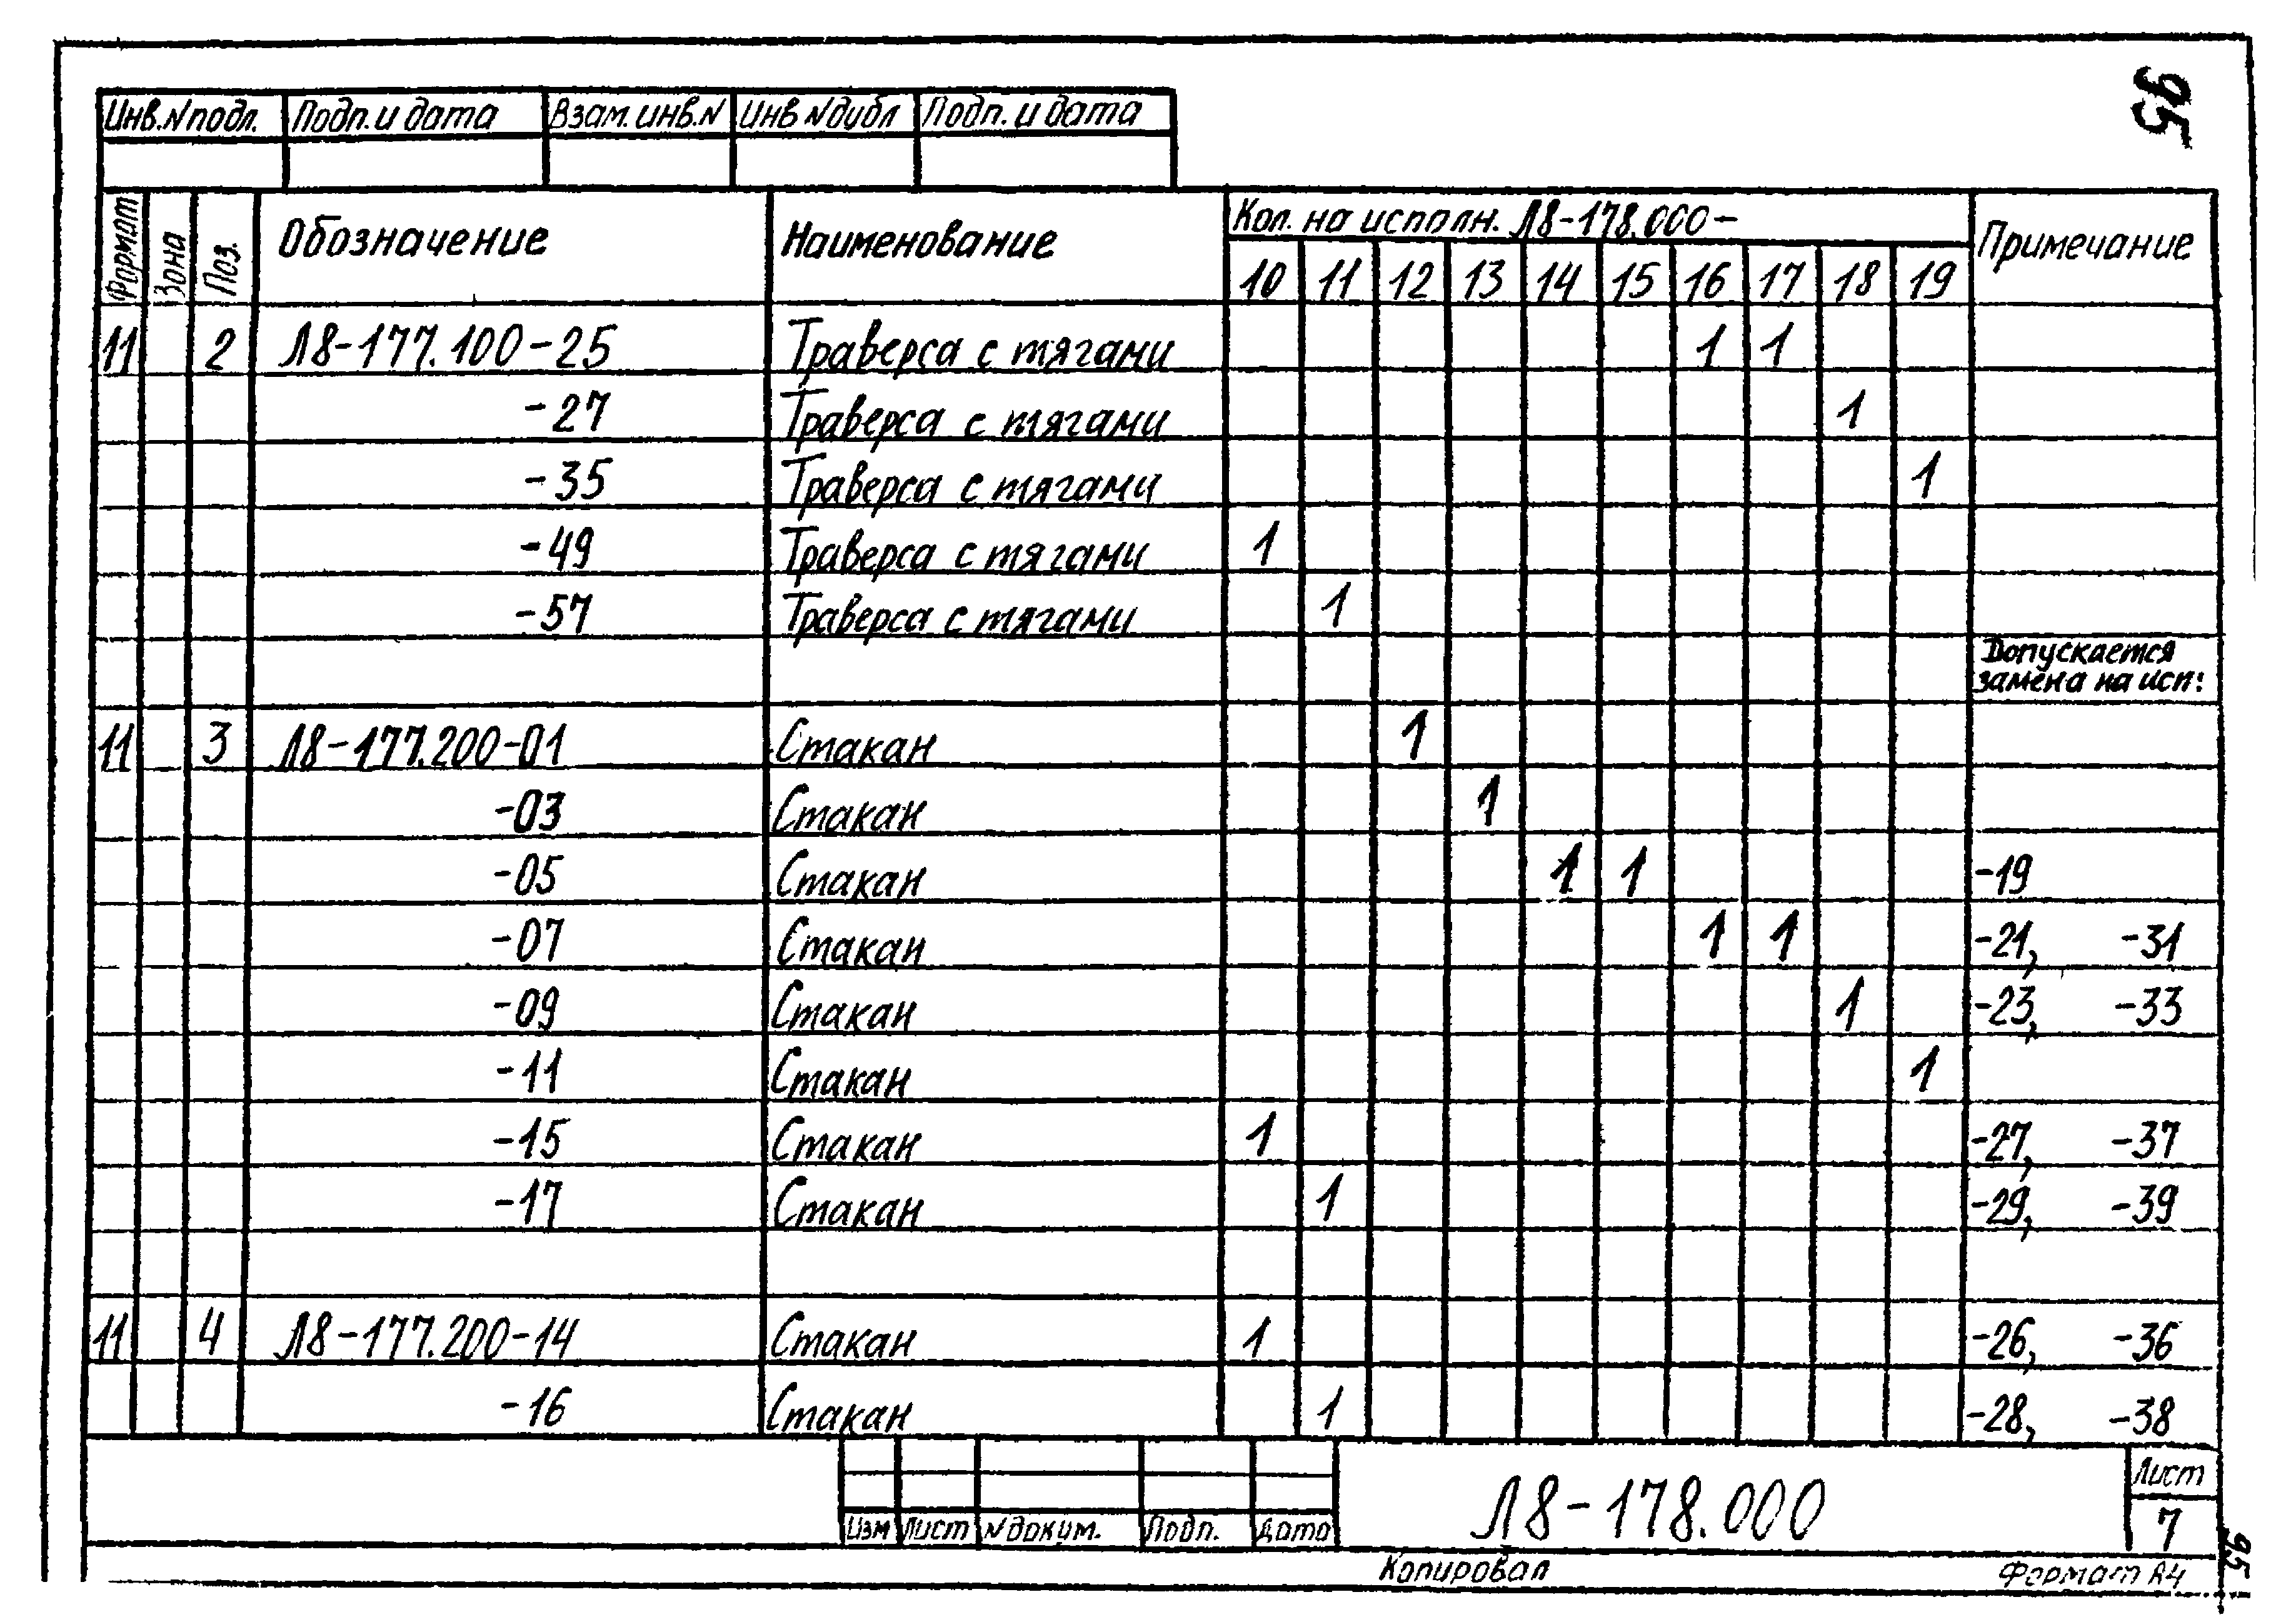 95
Инв.N подл. Подп. и дата Взам. инв.N Инв N дубл Подп. и дата
Формат Зона Поз. Обозначение Наименование Кол. на исполн. Л8-178.000- Примечание
10 11 12 13 14 15 16 17 18 19
11 2 Л8-177.100-25 Траверса с тягами 1 1
-27 Траверса с тягами 1
-35 Траверса с тягами 1
-49 Траверса с тягами 1
-57 Траверса с тягами 1
Допускается
замена на исп:
11 3 Л8-177.200-01 Стакан 1
-03 Стакан 1
-05 Стакан 1 1 -19
-07 Стакан 1 1 -21, -31
-09 Стакан 1 -23, -33
-11 Стакан 1
-15 Стакан 1 -27, -37
-17 Стакан 1 -29, -39
11 4 Л8-177.200-14 Стакан 1 -26, -36
-16 Стакан 1 -28, -38
Изм Лист N докум. Подп. Дата Л8-178.000 Лист
7
Копировал Формат А4
95